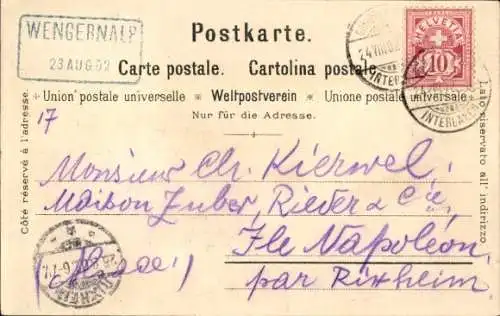 WENGERNALP
23 AUG 02
Postkarte.
Carte postale. Cartolina postale.
Union postale universelle * Weltpostverein * Unione postale universale
Nur für die Adresse.
Côté réservé à l'adresse.
Lato riservato all' indirizzo
HELVETIA
10
INTERLAKEN
INTERLAKEN
17
Monsieur Ch. Kierwel,
Maison Zuber, Rieder & Cie,
Ile Napoléon,
par Rixheim
(Alsace)
RIXHEIM